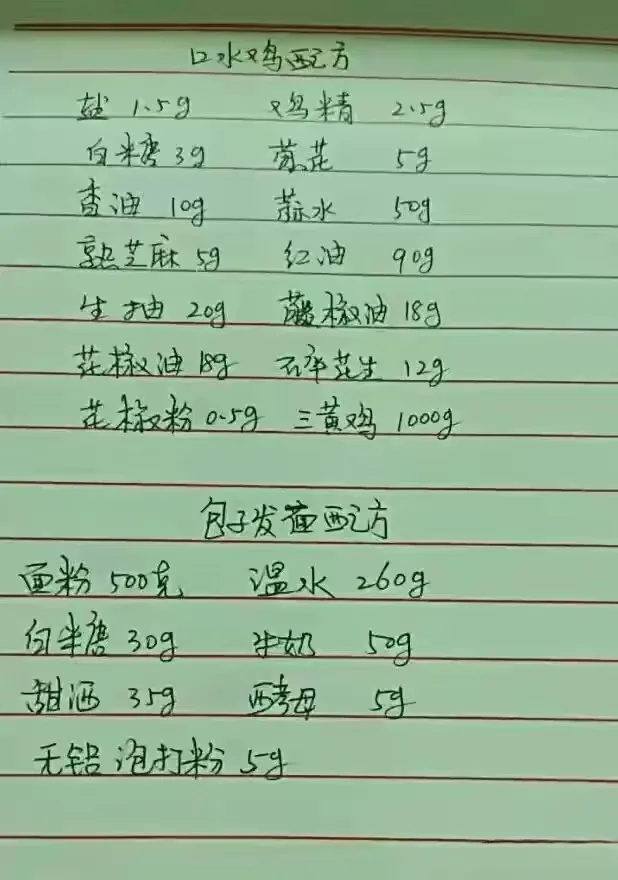 口水鸡配方
盐 1.5g 鸡精 2.5g
白米糖 3g 葱花 5g
香油 10g 蒜水 50g
熟芝麻 5g 红油 90g
生抽 20g 藤椒油 18g
花椒油 18g 碎花生 12g
花椒粉 0.5g 三黄鸡 1000g
包子发面配方
面粉 500克 温水 260g
白米糖 30g 牛奶 50g
甜酒 35g 酵母 5g
无铝泡打粉 5g